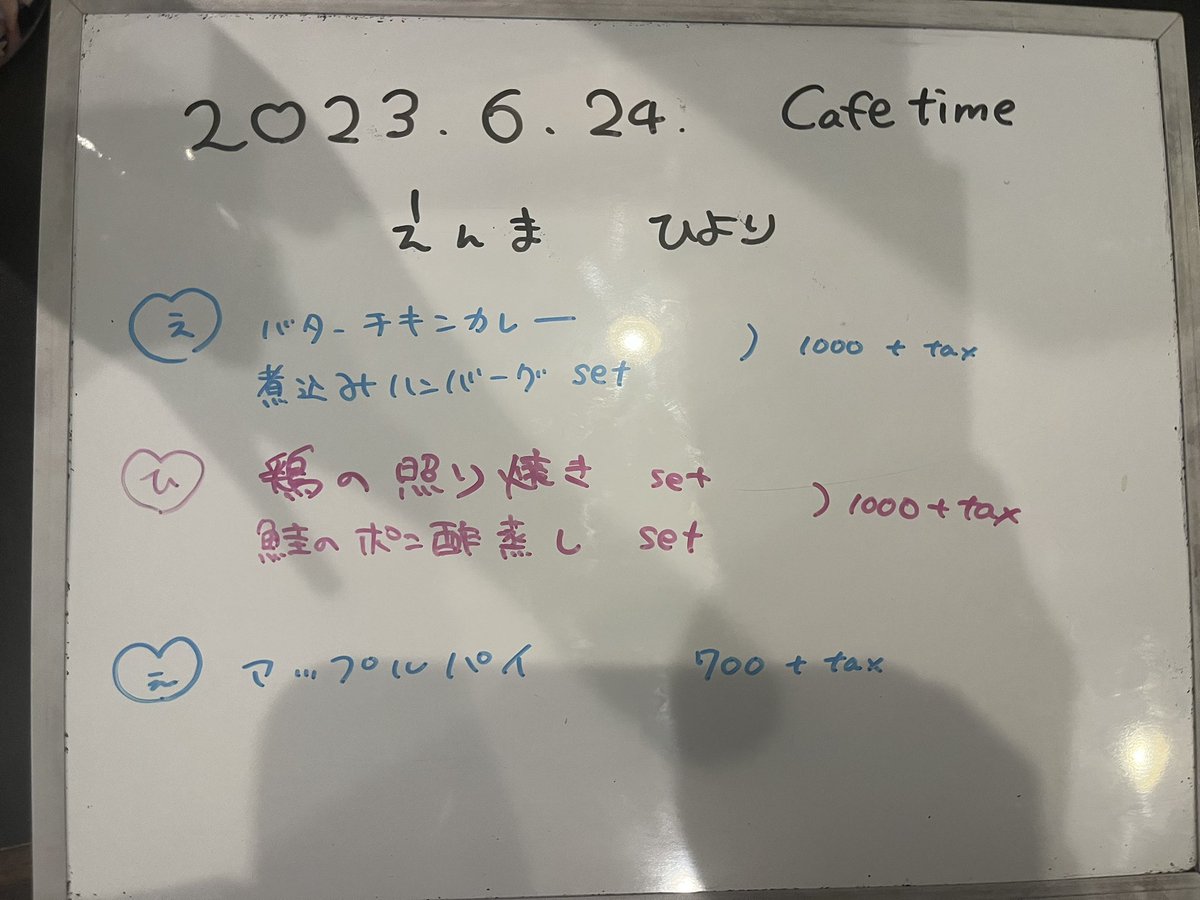 2023.6.24. Cafe time
えんま ひより
え バターチキンカレー
煮込みハンバーグ set ) 1000 + tax
ひ 鶏の照り焼き set
鮭のポン酢蒸し set ) 1000 + tax
え アップルパイ 700 + tax